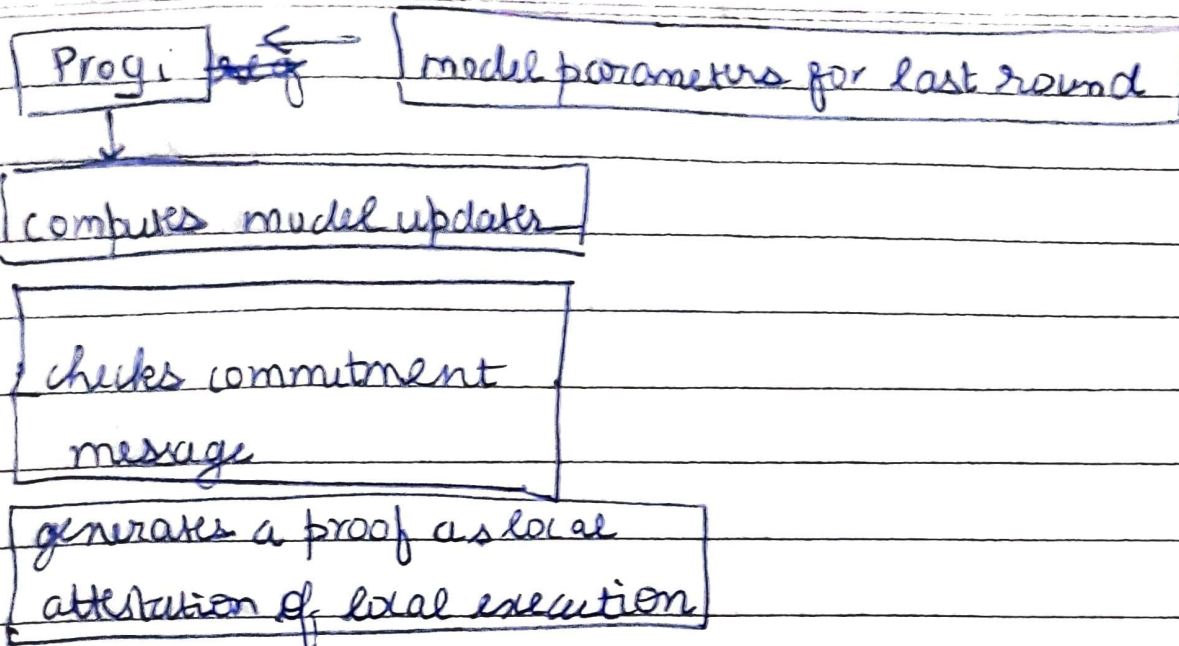 Progi
model parameters for last round
computes model updates
checks commitment
message
generates a proof as local
attestation of local execution